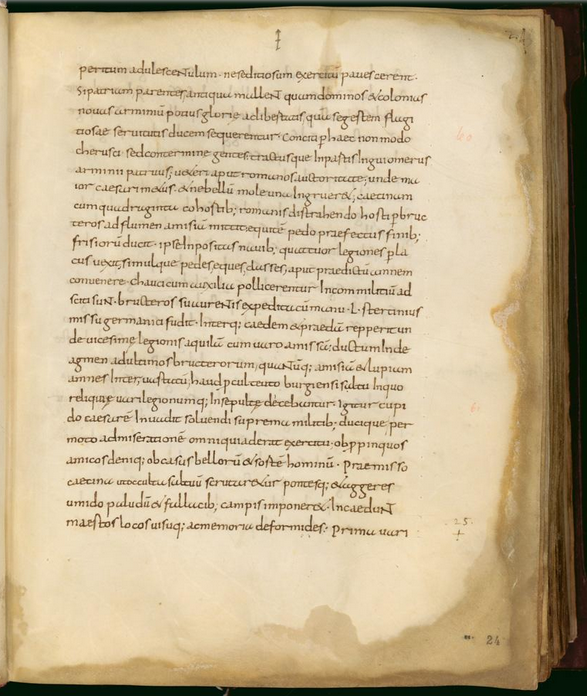 peritum adulescentulum · ne seditiosum exercitū pavescerent·
Si patriam parentes, antiqua mallent quam dominos & colonias
novas arminiū potius glorię ac libertatis, quā segestem flagi
tiosae servitutis ducem sequerentur· Conciti p haec non modo
cherusci sed contermine gentes, tractusque Inpartis Inguiomerus
arminii patruus, veteri aput romanos auctoritate; unde ma
ior caesari metus· & ne bellū mole una Ingruer&; caecinam
cum quadraginta cohortib; romanis distrahendo hosti p bruc
teros ad flumen amisiā mittit, equitē pedo praefectus finib;
frisiorū ducit· ipse Inpositas navib; quattuor legiones p la
cus vexit, simulque pedes, eques, classes, aput praedictū amnem
convenere· chauci cum auxilia pollicerentur Incommilitiū ad
sciti sunt· brusteros sua urentis expedita cū manu· L· stertinius
missu germanici fudit· Interq; caedem & praedā repperit un
de vicesime legionis aquilā cum varo amissā· ductum Inde
agmen ad ultimos bructerorum, quantūq; amisiā & lupiam
amnes Inter, vastatū, haud pcul ceuto burgiensi saltu Inquo
reliquię vari legionumq; Insepultę dicebantur· Igitur cupi
do caesarē Invadit solvendi suprema militib; ducique per
moto ad miserationē omni qui aderat exercitu· ob ppinquos
amicos deniq; ob casus bellorū & sortē hominū· Praemisso
caecina ut occulta saltuū scrutar&ur pontesq; & aggeres
umido paludū & fallacib; campis imponer&· Incedunt
maestos locos visuq; ac memoria deformides· Prima vari
25
24